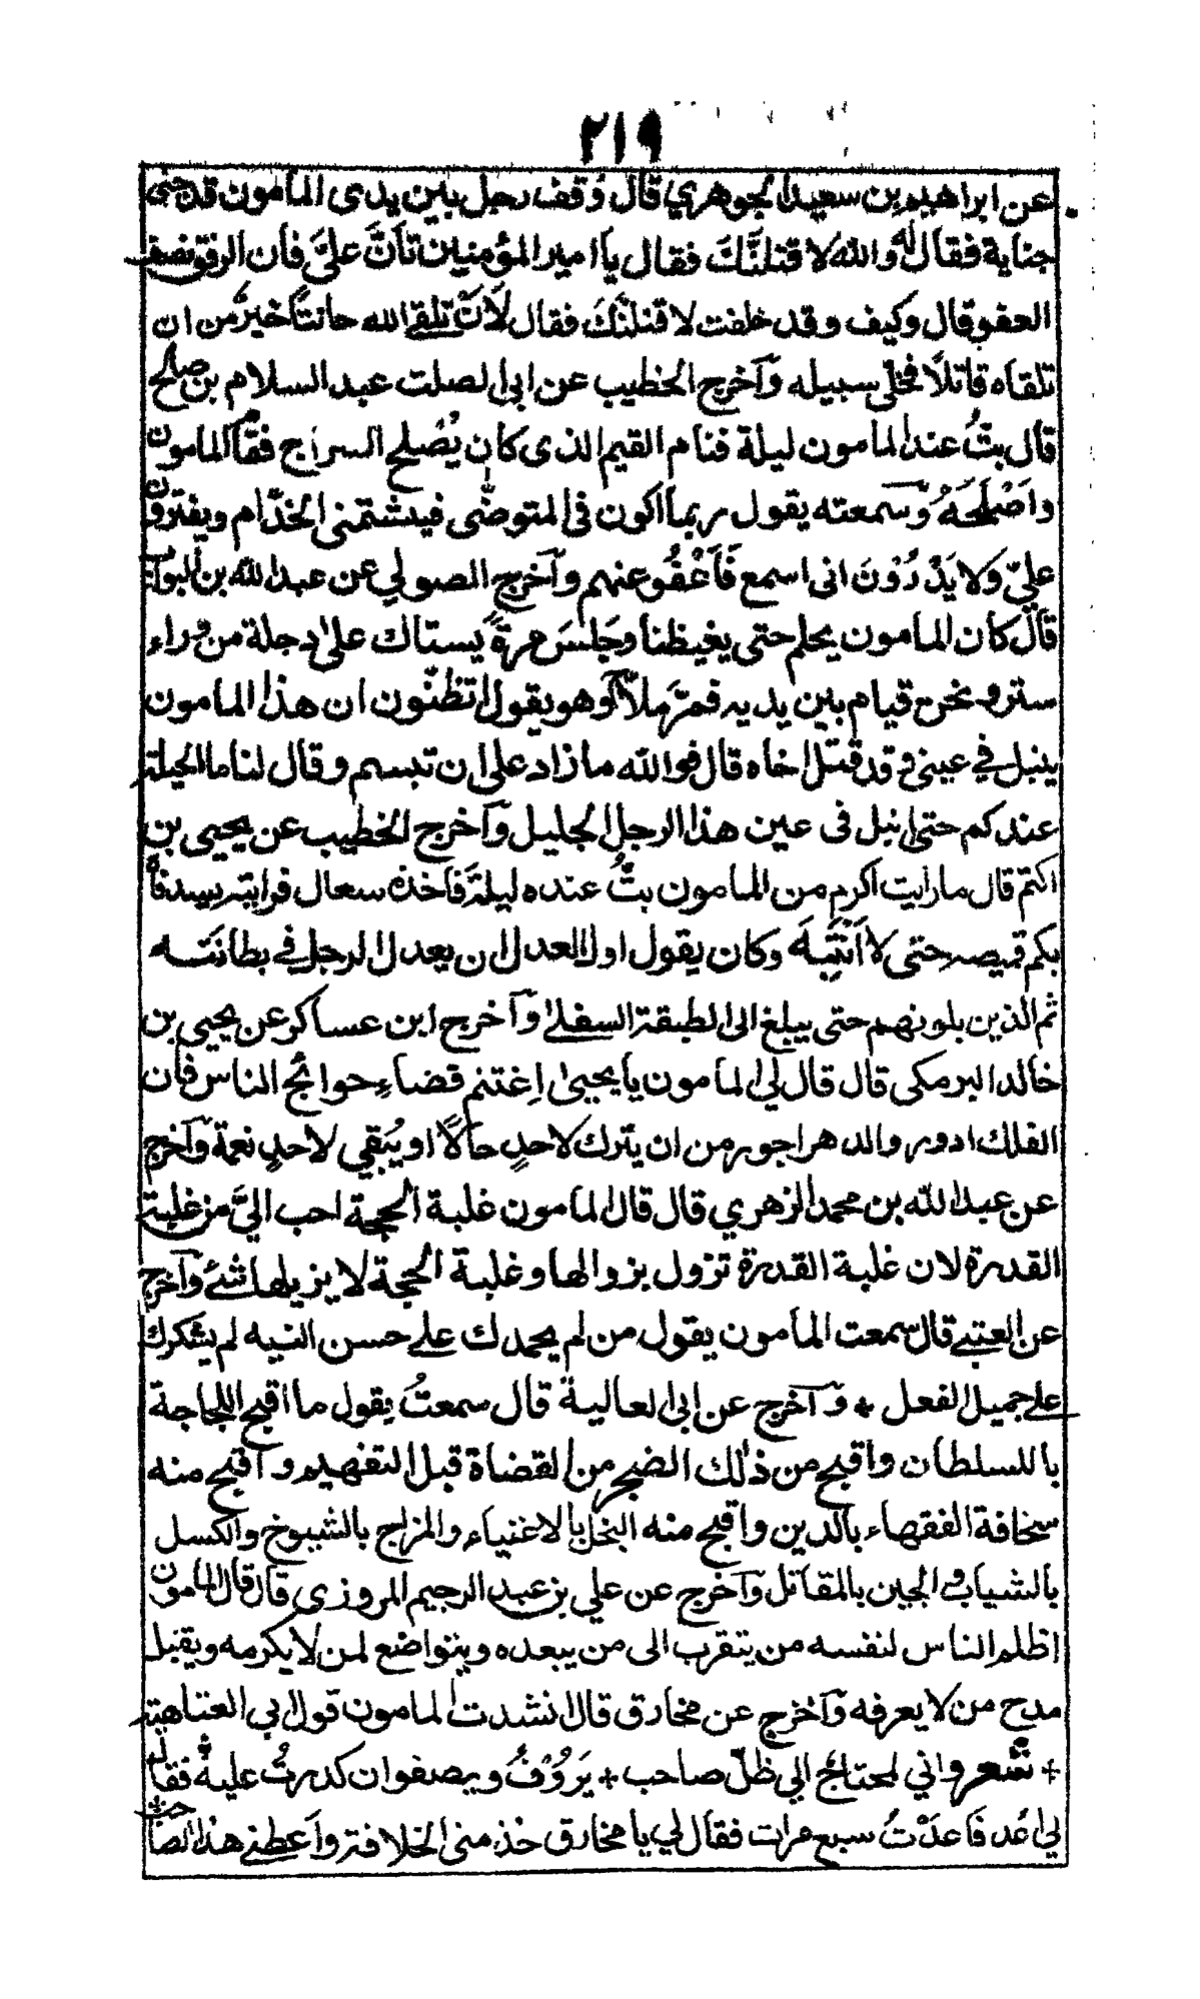 ٢١٩
عن ابراهيم بن سعيد الجوهري قال وُقف رجل بين يدى المامون قد جنى
جناية فقال له والله لا قتلنَّكَ فقال يا امير المؤمنين تأنَّ علىَّ فان الرفق نصف
العفو قال وكيف وقد خلفت لا قتلنَّكَ فقال لَأَنْ تلقى الله حانثًا خيرٌ من ان
تلقاه قاتلًا فخلى سبيله وَآخرج الخطيب عن ابى الصلت عبد السلام بن صالح
قال بتُّ عند المامون ليلة فنام القيم الذى كان يُصلح السراج فقام المامون
واَصْلَحَهُ وَسمعته يقول ربما اكون فى المتوضّى فيشتمنى الخدّام ويفترون
عليّ وَلا يَدْرُوْنَ انى اسمع فَاَعْفُو عنهم وآخرج الصولي عن عبد الله بن البواب
قال كان المامون يحلم حتى يغيظنا وجَلَسَ مرةً يستاك على دجلة من وراء
ستر ونحن قيام بين يديه فمرّ مَلاّحٌ وهو يقول اتظنّون ان هذا المامون
ينبل في عينى وقد قتل اخاه قال فوالله ما زاد على ان تبسم وقال لنا ما الحيلة
عندكم حتى انبل فى عين هذا الرجل الجليل وَآخرج الخطيب عن يحيى بن
اكثم قال ما رايت اكرم من المامون بتُّ عنده ليلة فَاخذه سعال فرايته يسد فاه
بكم قميصه حتى لا اَنْتَبِهَ وكان يقول اول العدل ان يعدل الرجل في بطانته
ثم الذين يلونهم حتى يبلغ الى الطبقة السفلى وَآخرج ابن عساكر عن يحيى بن
خالد البرمكى قال قال لي المامون يا يحيىٰ اِغتنم قضاءِ حوائج الناس فان
الفلك ادور والدهر اجور من ان يترك لاحدٍ حالًا او يُبقي لاحدٍ نعمة وَآخرج
عن عبد الله بن محمد الزهري قال قال المامون غلبة الحجة احب اليَّ من غلبة
القدرة لان غلبة القدرة تزول بزوالها وغلبة الحجة لا يزيلها شئ وَآخرج
عن العتبى قال سمعت المامون يقول من لم يحمدك على حسن النيه لم يشكرك
على جميل الفعل * وَآخرج عن ابى العالية قال سمعتُ يقول ما اقبح اللجاجة
باللسلطان واقبح من ذٰلك الضجر من القضاة قبل التفهيم واقبح منه
سخافة الفقهاء بالدين واقبح منه البخل بالاغنياء والمزاح بالشيوخ والكسل
بالشباب والجبن بالمقاتل وَآخرج عن علي بن عبد الرحيم المروزى قال قال المامون
اظلم الناس لنفسه من يتقرب الى من يبعده ويتواضع لمن لا يكرمه ويقبل
مدح من لا يعرفه وَآخرج عن مخارق قال انشدت المامون قول ابي العتاهية
* شعر واني لمحتاج الي ظلّ صاحب * يَرُوْقُ ويصفو ان كدرتُ عليه فقال
لي اعُد فَاعدْتُ سبع مرات فقال لي يا مخارق خذ منى الخلافة واَعطنى هذا الصاحب